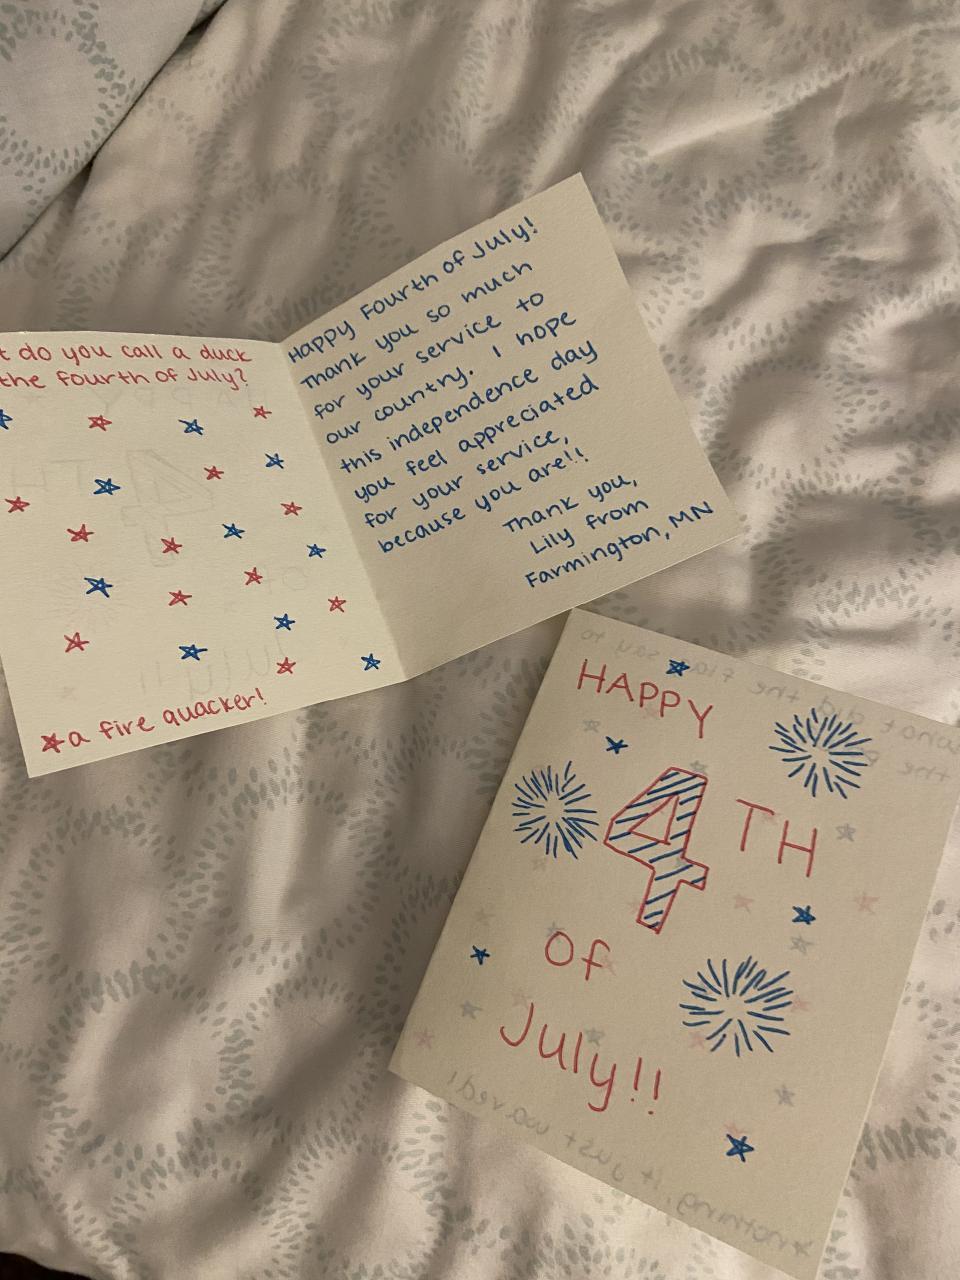 t do you call a duck
the fourth of July?
*a fire quacker!
Happy Fourth of July!
Thank you so much
for your service to
our country. I hope
this independence day
you feel appreciated
for your service,
because you are!!
Thank you,
Lily from
Farmington, MN
HAPPY
4TH
of
July!!
what did the flag say to
the
*nothing, it just waved!